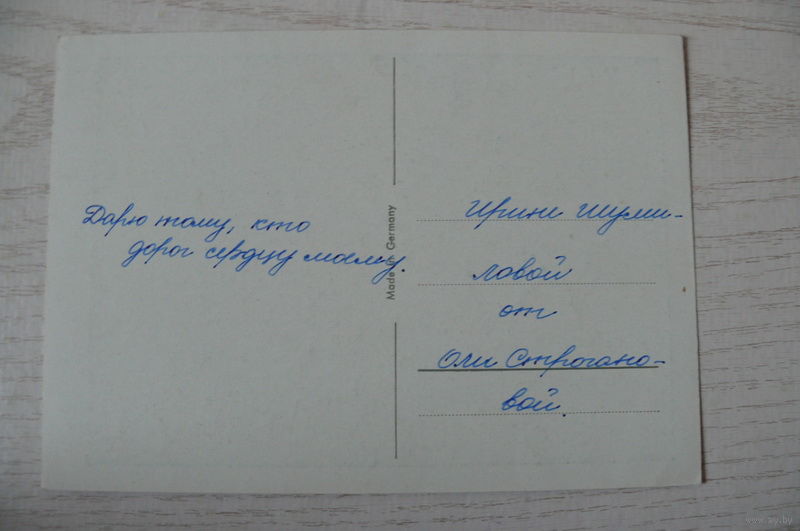 Дарю тому, кто
дорог сердцу моему.
Made in Germany
Ирине Шуми-
ловой
от
Оли Строгано-
вой.
www.ay.by